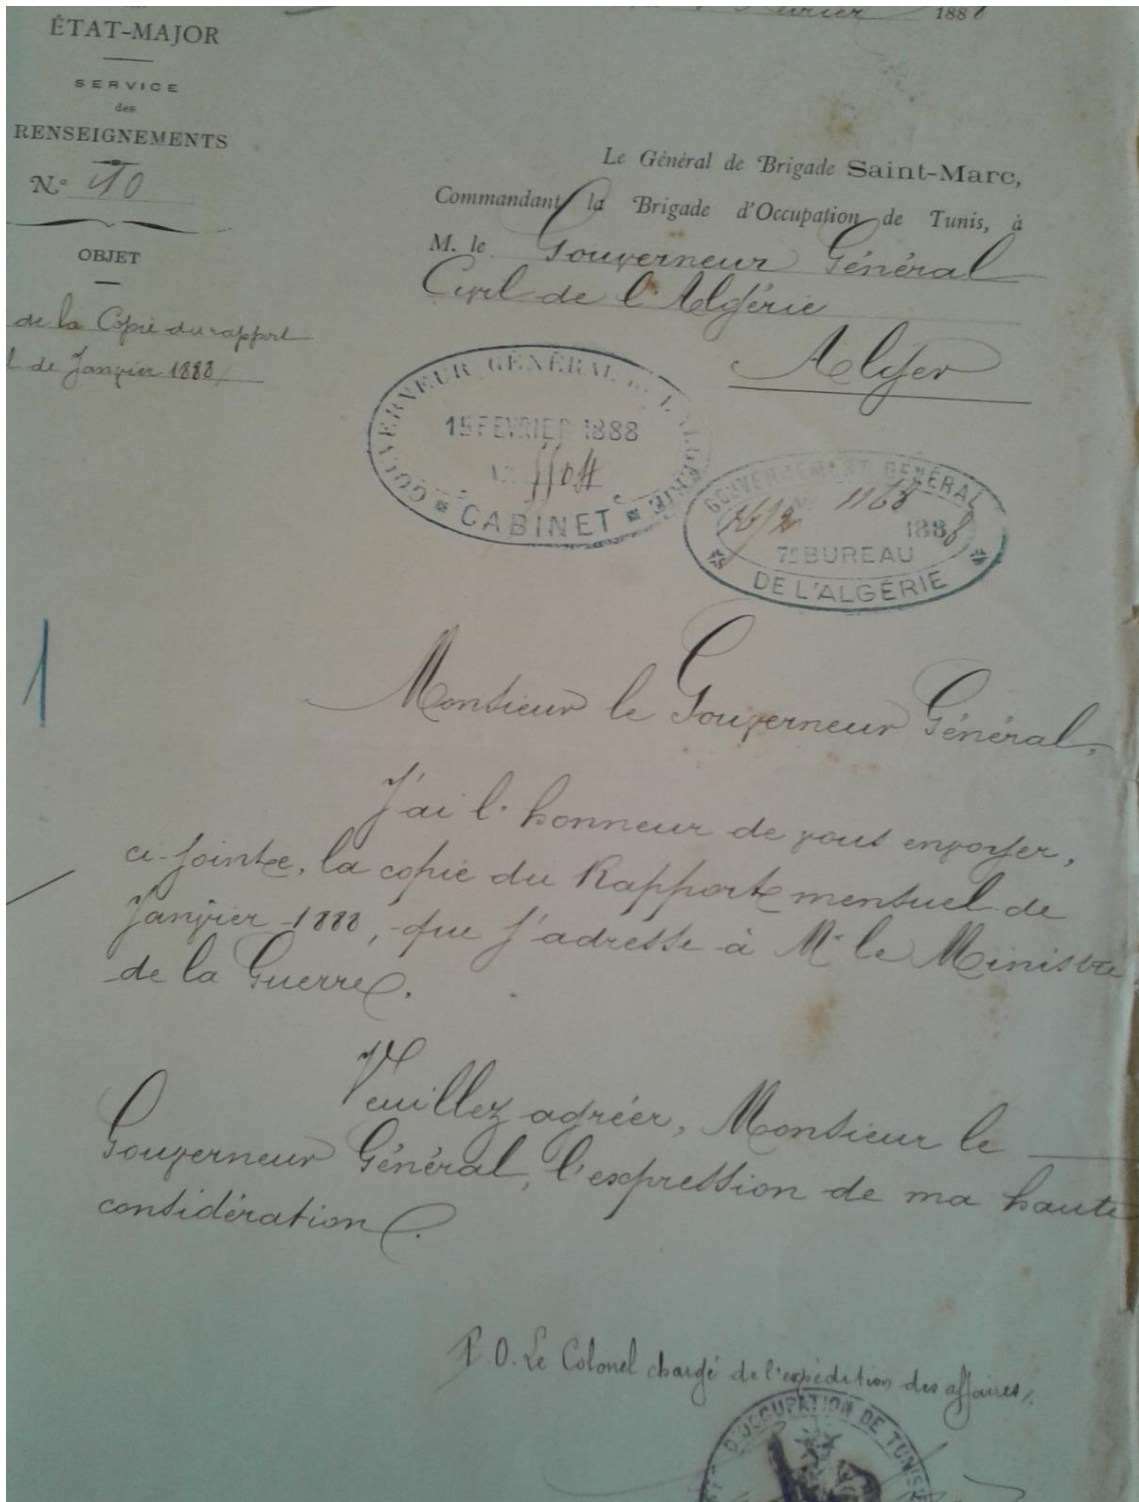 ÉTAT-MAJOR
SERVICE
des
RENSEIGNEMENTS
N° 10
OBJET
de la Copie du rapport
de Janvier 1888
Février 1888
Le Général de Brigade Saint-Marc,
Commandant la Brigade d'Occupation de Tunis, à
M. le Gouverneur Général
Civil de l'Algérie
Alger
GOUVERNEUR GÉNÉRAL DE L'ALGÉRIE
15 FEVRIER 1888
CABINET
GOUVERNEMENT GÉNÉRAL
1168
1888
7e BUREAU
DE L'ALGÉRIE
1
Monsieur le Gouverneur Général,
J'ai l'honneur de vous envoyer,
ci-jointe, la copie du Rapport mensuel de
Janvier 1888, que j'adresse à Mr le Ministre
de la Guerre.
Veuillez agréer, Monsieur le
Gouverneur Général, l'expression de ma haute
considération.
P.O. Le Colonel chargé de l'expédition des affaires
D'OCCUPATION DE TUNISIE